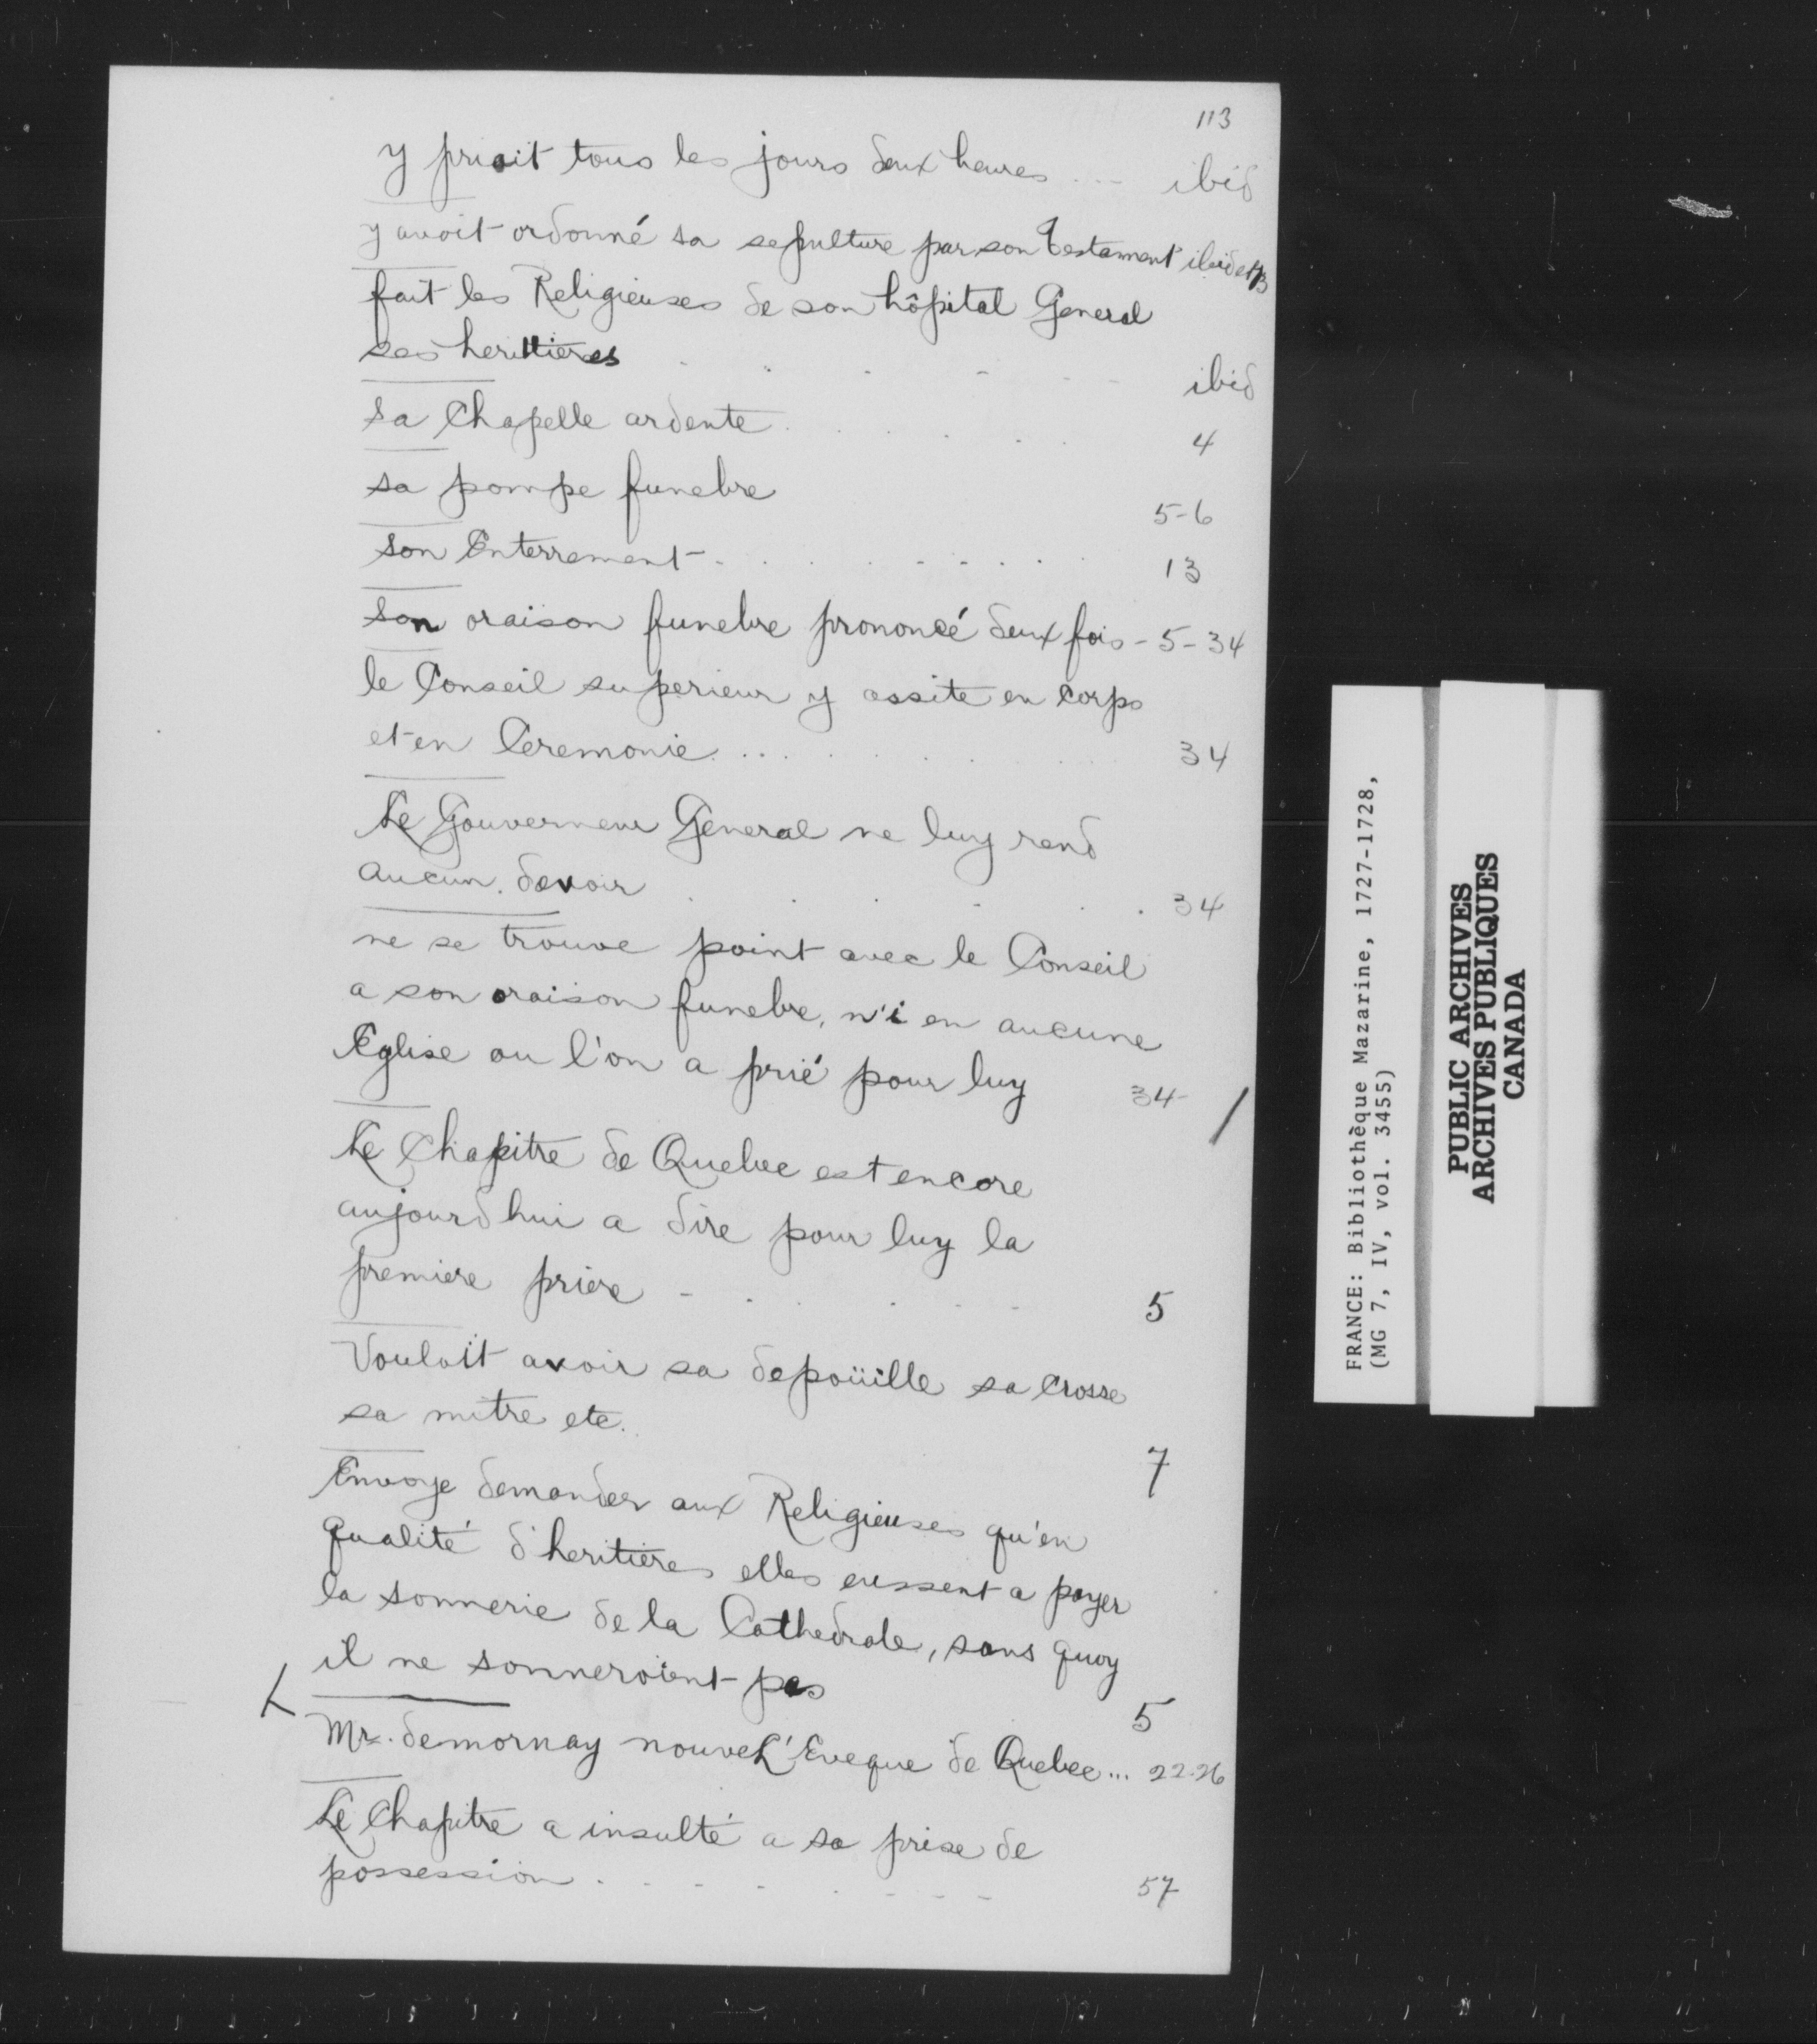 113
y priait tous les jours deux heures ... ibid
y avoit ordonné sa sepulture par son testament ibid et 13
fait les Religieuses de son hôpital General
ses herittieres ibid
sa Chapelle ardente 4
sa pompe funebre 5-6
son Enterrement 13
son oraison funebre prononcé deux fois - 5-34
le Conseil superieur y assite en Corps
et en Ceremonie ... 34
Le Gouverneur General ne luy rend
aucun devoir 34
ne se trouve point avec le Conseil
a son oraison funebre, n'i en aucune
Eglise ou l'on a prié pour luy 34
Le Chapitre de Quebec est encore
aujourd hui a dire pour luy la
premiere priere 5
Vouloit avoir sa depoüille sa Crosse
sa mitre etc. 7
Envoye demander aux Religieuses qu'en
qualité d'heritieres elles eussent a payer
la sonnerie de la Cathedrale, sans quoy
il ne sonneroient pas 5
Mr. demornay nouvel Eveque de Quebec ... 22-26
Le Chapitre a insulté a sa prise de
possession 57
FRANCE: Bibliothèque Mazarine, 1727-1728,
(MG 7, IV, vol. 3455)
PUBLIC ARCHIVES
ARCHIVES PUBLIQUES
CANADA